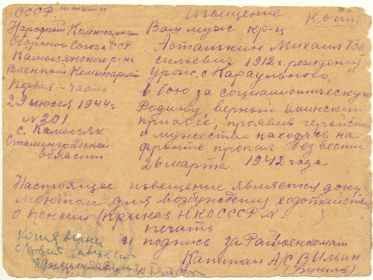 СССР
Извещение
Копия
Народный Комиссариат
Обороны Союза ССР
Камызякского р-на
Военный Комиссариат
Первая - часть
29 июля 1944 г
№ 201
с. Камызяк
Сталинградской
области
Ваш муж кр-ц
Михаил Ва
сильевич 1912 г. рождения
урож. с. Караульного,
в бою за социалистическую
Родину, верный воинской
присяге, проявив геройство
и мужество находясь на
фронте пропал без вести
26 марта 1942 года
Настоящее извещение является доку
ментом для возбуждения ходатайства
о пенсии (приказ НКО СССР №)
печать
и подпись за Райвоенкома
Капитан А/С
Копия верна